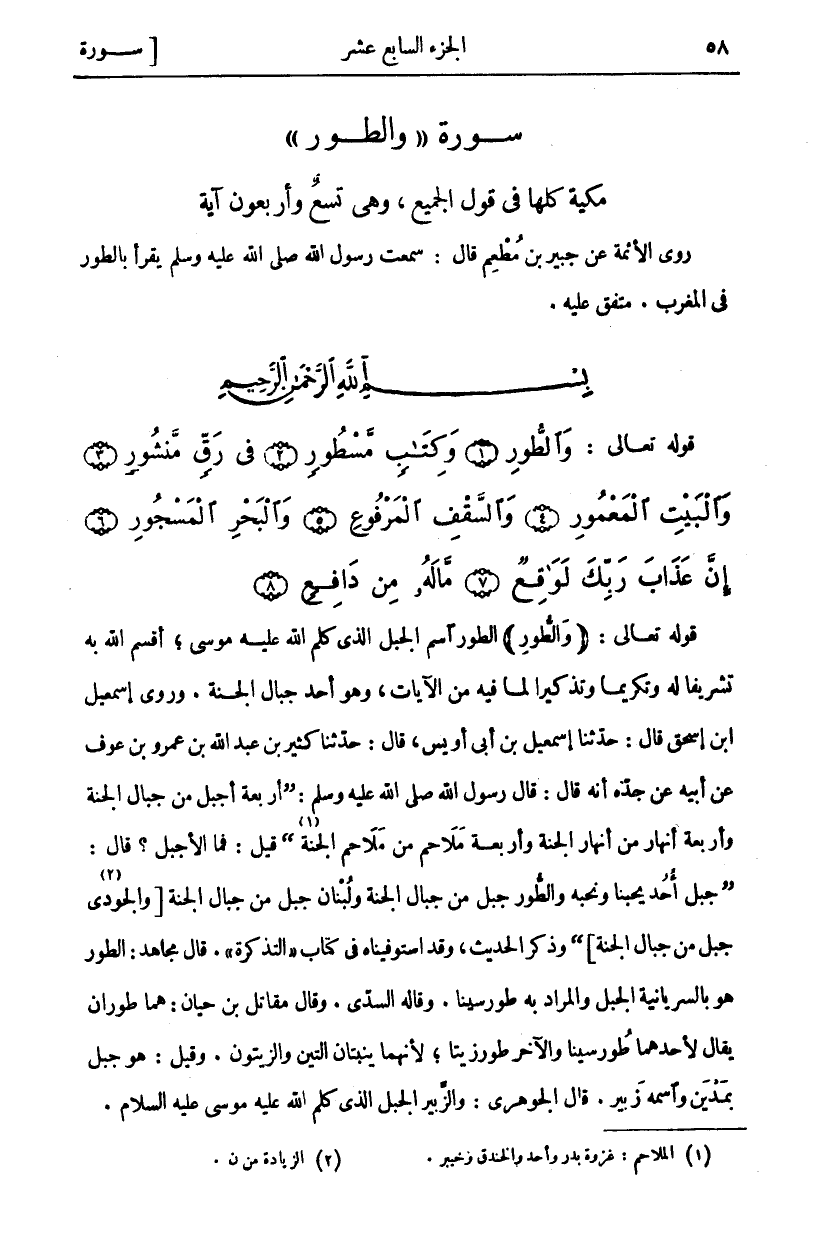 ٥٨ الجزء السابع عشر [ ســورة
ســورة « والطــور »
مكية كلها فى قول الجميع ، وهى تسعٌ وأربعون آية
روى الأئمة عن جبير بن مُطْعِم قال : سمعت رسول الله صلى الله عليه وسلم يقرأ بالطور
فى المغرب . متفق عليه .
بِسْــــمِ ٱللَّهِ ٱلرَّحْمَٰنِ ٱلرَّحِيمِ
قوله تعــالى : وَٱلطُّورِ ﴿١﴾ وَكِتَٰبٍ مَّسْطُورٍ ﴿٢﴾ فِى رَقٍّ مَّنشُورٍ ﴿٣﴾
وَٱلْبَيْتِ ٱلْمَعْمُورِ ﴿٤﴾ وَٱلسَّقْفِ ٱلْمَرْفُوعِ ﴿٥﴾ وَٱلْبَحْرِ ٱلْمَسْجُورِ ﴿٦﴾
إِنَّ عَذَابَ رَبِّكَ لَوَٰقِعٌ ﴿٧﴾ مَّالَهُۥ مِن دَافِعٍ ﴿٨﴾
قوله تعــالى : ﴿ وَٱلطُّورِ ﴾ الطور آسم الجبل الذى كلم الله عليــه موسى ؛ أقسم الله به
تشريفا له وتكريمــا وتذكيرا لمــا فيه من الآيات ، وهو أحد جبال الجــنة . وروى إسمعيل
ابن إسحق قال : حدّثنا إسمعيل بن أبى أويس ، قال : حدّثنا كثير بن عبد الله بن عمرو بن عوف
عن أبيه عن جدّه أنه قال : قال رسول الله صلى الله عليه وسلم : ”أربعة أجبل من جبال الجنة
وأربعة أنهار من أنهار الجنة وأربعــة مَلَاحم من مَلَاحم الجنة (١) “ قيل : فما الأجبل ؟ قال :
”جبل أُحُد يحبنا ونحبه والطُّور جبل من جبال الجنة ولُبْنان جبل من جبال الجنة [ والجُودى (٢)
جبل من جبال الجنة ] “ وذكر الحديث ، وقد استوفيناه فى كتاب «التذكرة» . قال مجاهد : الطور
هو بالسريانية الجبل والمراد به طورسينا . وقاله السدّى . وقال مقاتل بن حيان : هما طوران
يقال لأحدهما طُورسينا والآخر طورزيتا ؛ لأنهما ينبتان التين والزيتون . وقيل : هو جبل
بمَدْيَن وآسمه زَبير . قال الجوهرى : والزَّبير الجبل الذى كلم الله عليه موسى عليه السلام .
(١) الملاحم : غزوة بدر وأحد والخندق وخيبر . (٢) الزيادة من ن .